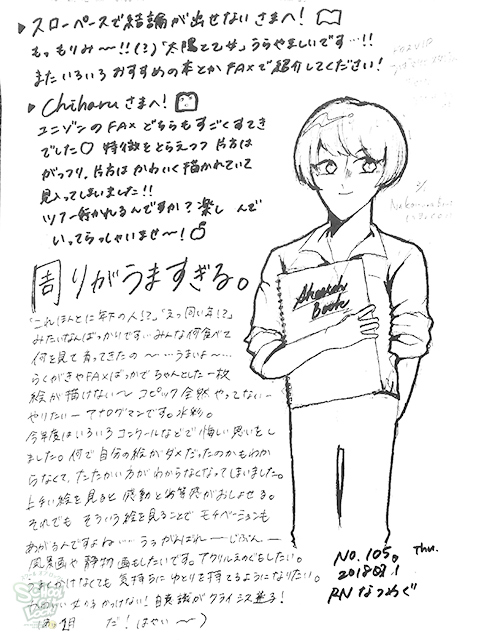 ▸スローペースで結論が出せないさまへ!
もっもりみ〜!!(?)「太陽と乙女」うらやましいです…!!
またいろいろおすすめの本とかFAXで紹介してください!
▸Chiharuさまへ!
ユニゾンのFAxどちらもすごくすてき
でした♡ 特徴をとらえつつ片方は
がっつり、片方はかわいく描かれていて
見入ってしまいました!!
ツアー行かれるんですか?楽しんで
いってらっしゃいませ〜!
周りがうますぎる。
「これほんとに年下の人!?」「えっ同い年!?」
みたいなんばっかりです…みんな何食べて
何を見て育ってきたの〜…うまいよ〜…
らくがきやFAXばっかでちゃんとした一枚
絵が描けない〜コピック全然やってない〜
やりたいーアナログマンです。水彩。
今年度はいろいろコンクールなどで悔しい思いをし
ました。何で自分の絵がダメだったのかもわか
らなくて、たたかい方がわからなくなってしまいました。
上手い絵を見ると感動と劣等感がおしよせる。
それでもそういう絵を見ることでモチベーションも
あがるんですよね…うぅがんばれーじぶんー
風景画や静物画もしたいです。アクリルえのぐもしたい。
うまくかけなくても気持ちにゆとりを持てるようになりたい。
Sketch
Book
No.105。
Thu.
2018.
RNなつめぐ